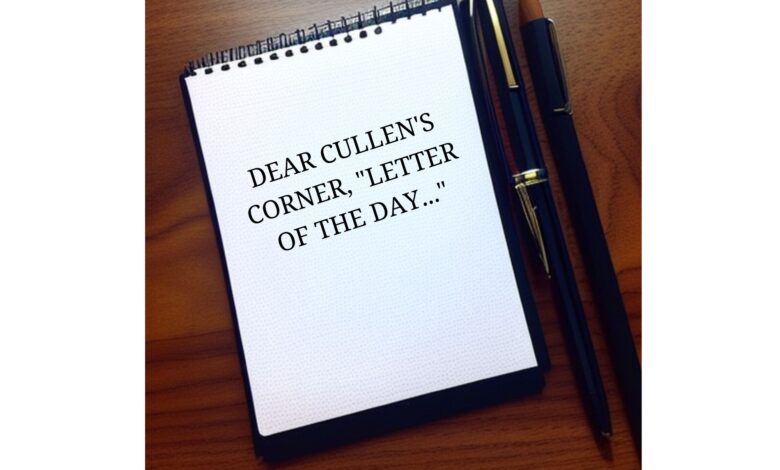 DEAR CULLEN'S
CORNER, "LETTER
OF THE DAY..."